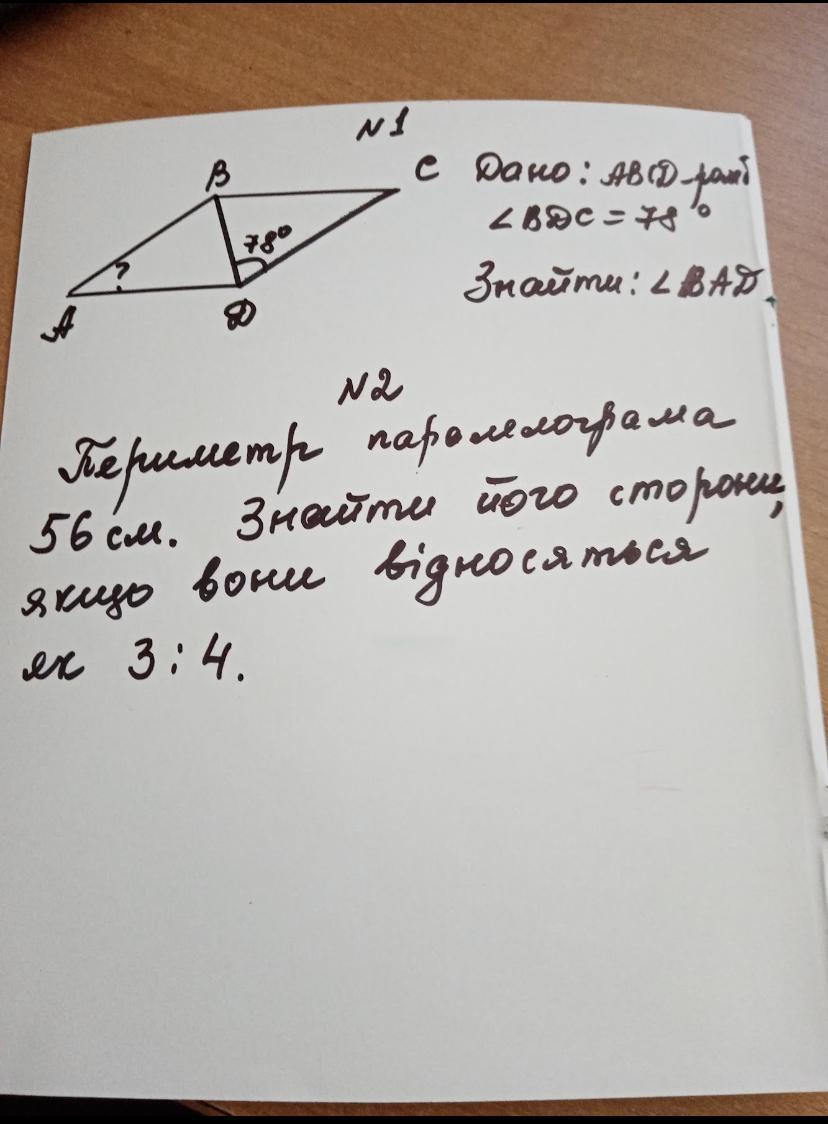 N1
B
C
78°
?
A
D
Дано: ABCD-ромб
∠BDC = 78°
Знайти: ∠BAD
N2
Периметр паралелограма
56 см. Знайти його сторони,
якщо вони відносяться
як 3:4.